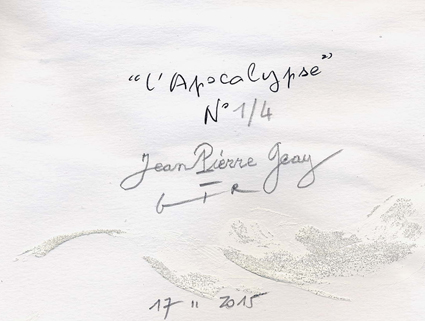 “L'Apocalypse”
N° 1/4
Jean Pierre Geay
17 " 2015